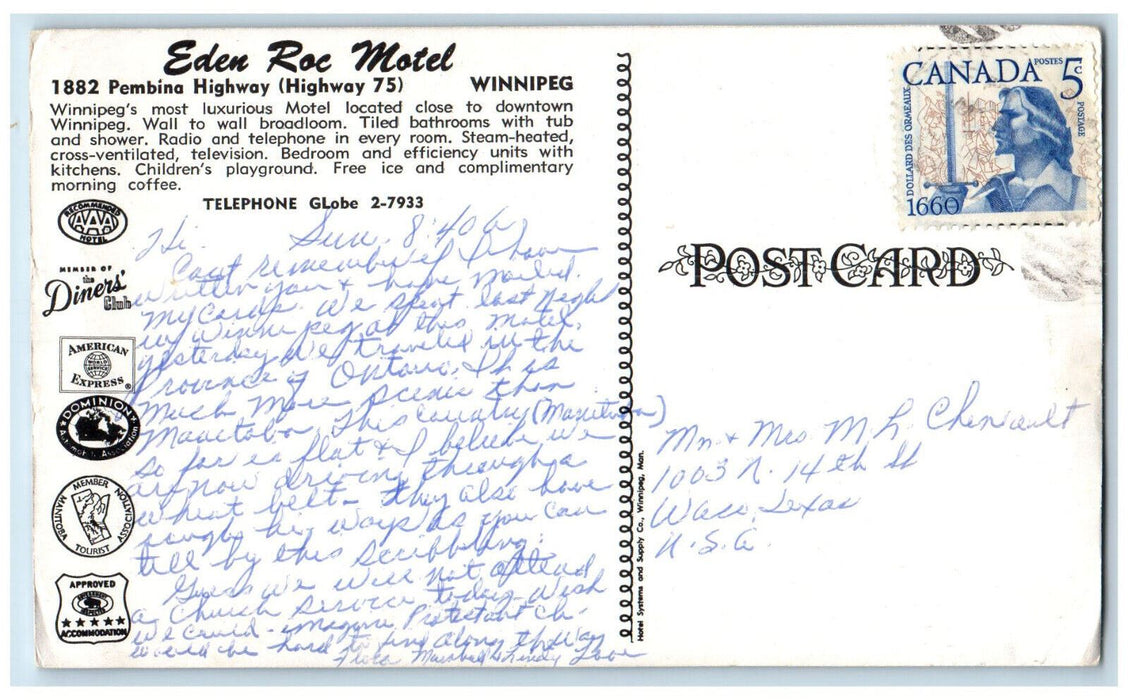 Eden Roc Motel
1882 Pembina Highway (Highway 75) WINNIPEG
Winnipeg's most luxurious Motel located close to downtown
Winnipeg. Wall to wall broadloom. Tiled bathrooms with tub
and shower. Radio and telephone in every room. Steam-heated,
cross-ventilated, television. Bedroom and efficiency units with
kitchens. Children's playground. Free ice and complimentary
morning coffee.
TELEPHONE GLobe 2-7933
RECOMMENDED
AAA
MOTEL
MEMBER OF
the
Diners'
Club
AMERICAN
WORLD
SERVICE
EXPRESS®
DOMINION
Association
MEMBER
MANITOBA
TOURIST
ASSOCIATION
APPROVED
ACCOMMODATION
Hi. Sun. 8:40 a
Can't remember if I have
written you & have mailed
my cards. We spent last night
in Winnipeg at this Motel.
Yesterday we traveled in the
Province of Ontario. It is
much more scenic than
Manitoba. This country (Manitoba)
so far is flat & I believe we
are now driving through a
wheat belt - they also have
rough hiways as you can
tell by this scribbling.
Guess we will not attend
a Church service today - wish
we could - imagine Protestant Ch.
would be hard to find along the way
Marshall & Love
Hotel Systems and Supply Co., Winnipeg, Man.
CANADA POSTES 5c
POSTAGE
DOLLARD DES ORMEAUX
1660
POST CARD
Mr. & Mrs. M. L. Chenault
1003 N. 14th St
Waco, Texas
U.S.A.